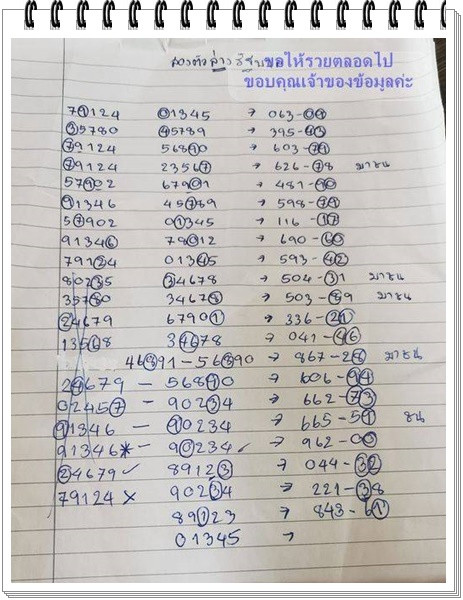 สองตัวล่าง
ขอให้รวยตลอดไป
ขอบคุณเจ้าของข้อมูลค่ะ
79124 01345 → 063-09
35780 45789 → 395-43
79124 56890 → 603-71
79124 23567 → 626-78 มาชน
57902 67901 → 481-90
91346 45789 → 598-79
57902 01345 → 116-17
91346 78012 → 690-60
79124 01345 → 593-42
80235 34678 → 504-31 มาชน
35780 34678 → 503-89 มาชน
24679 67901 → 336-21
13568 34678 → 041-46
46891-56890 → 867-28 มาชน
24679 - 56890 → 606-94
02457 - 90234 → 662-73
91346 - 90234 → 665-51 ชน
91346* - 90234 ✓ → 962-00
24679 ✓ 89123 → 044-32
79124 × 90234 → 221-38
89123 → 843-61
01345 →